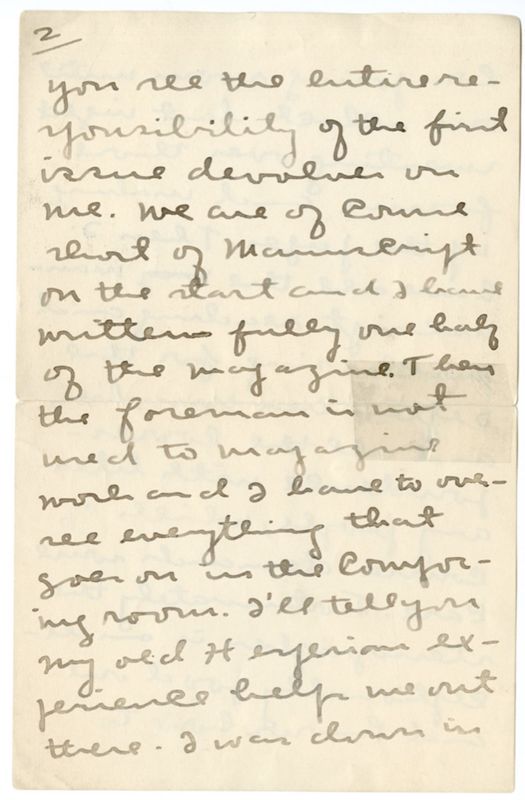 2
you see the entire re-
sponsibility of the first
issue devolves on
me. We are of course
short of Manuscript
on the start and I have
written fully one half
of the magazine. Then
the foreman is not
used to magazine
work and I have to over-
see everything that
goes on in the Compos-
ing room. I'll tell you
my old Hesperian ex-
perience helps me out
there. I was down in